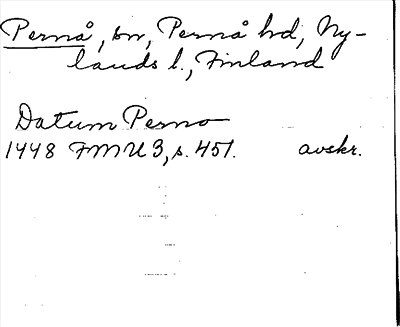 Pernå, sn, Pernå hd, Ny-
lands l., Finland
Datum Perno
1448 FMU 3, s. 451. avskr.